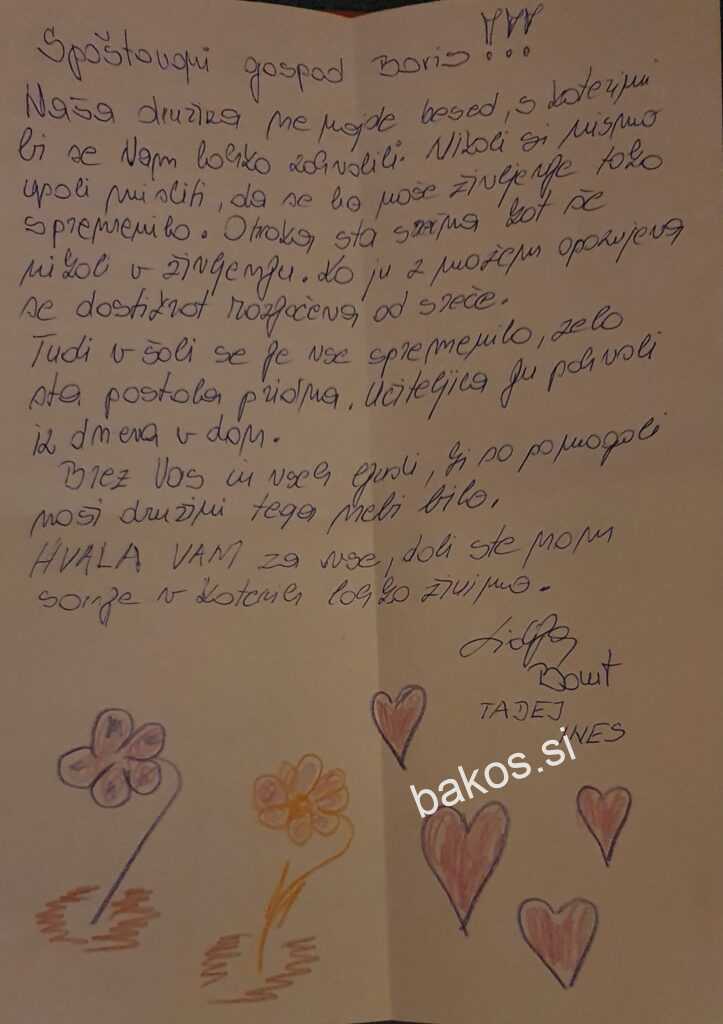 Spoštovani gospod Boris!!!
Naša družina ne najde besed, s katerimi
bi se Vam lahko zahvalili. Nikoli si nismo
upali misliti, da se bo naše življenje tako
spremenilo. Otroka sta srečna kot še
nikoli v življenju. Ko ju z možem opazujeva
se dostikrat razjočeva od sreče.
Tudi v šoli se je vse spremenilo, zelo
sta postala pridna. Učiteljica ju pohvali
iz dneva v dan.
Brez Vas in vseh ljudi, ki so pomagali
naši družini tega nebi bilo.
HVALA VAM za vse, dali ste nam
sanje v katerih lahko živimo.
TADEJ
INES
bakos.si